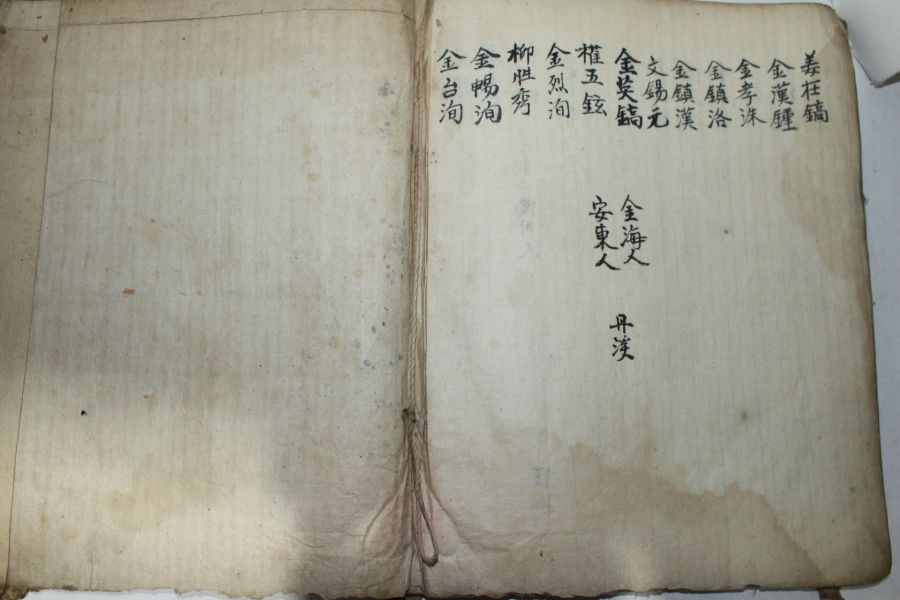 姜在鎬
金漢鍾
金孝洙
金鎮洛
金鎮漢
文錫元
金英鎬
金海人
丹溪
權五鉉
安東人
金烈洵
柳胜秀
金暢洵
金台洵